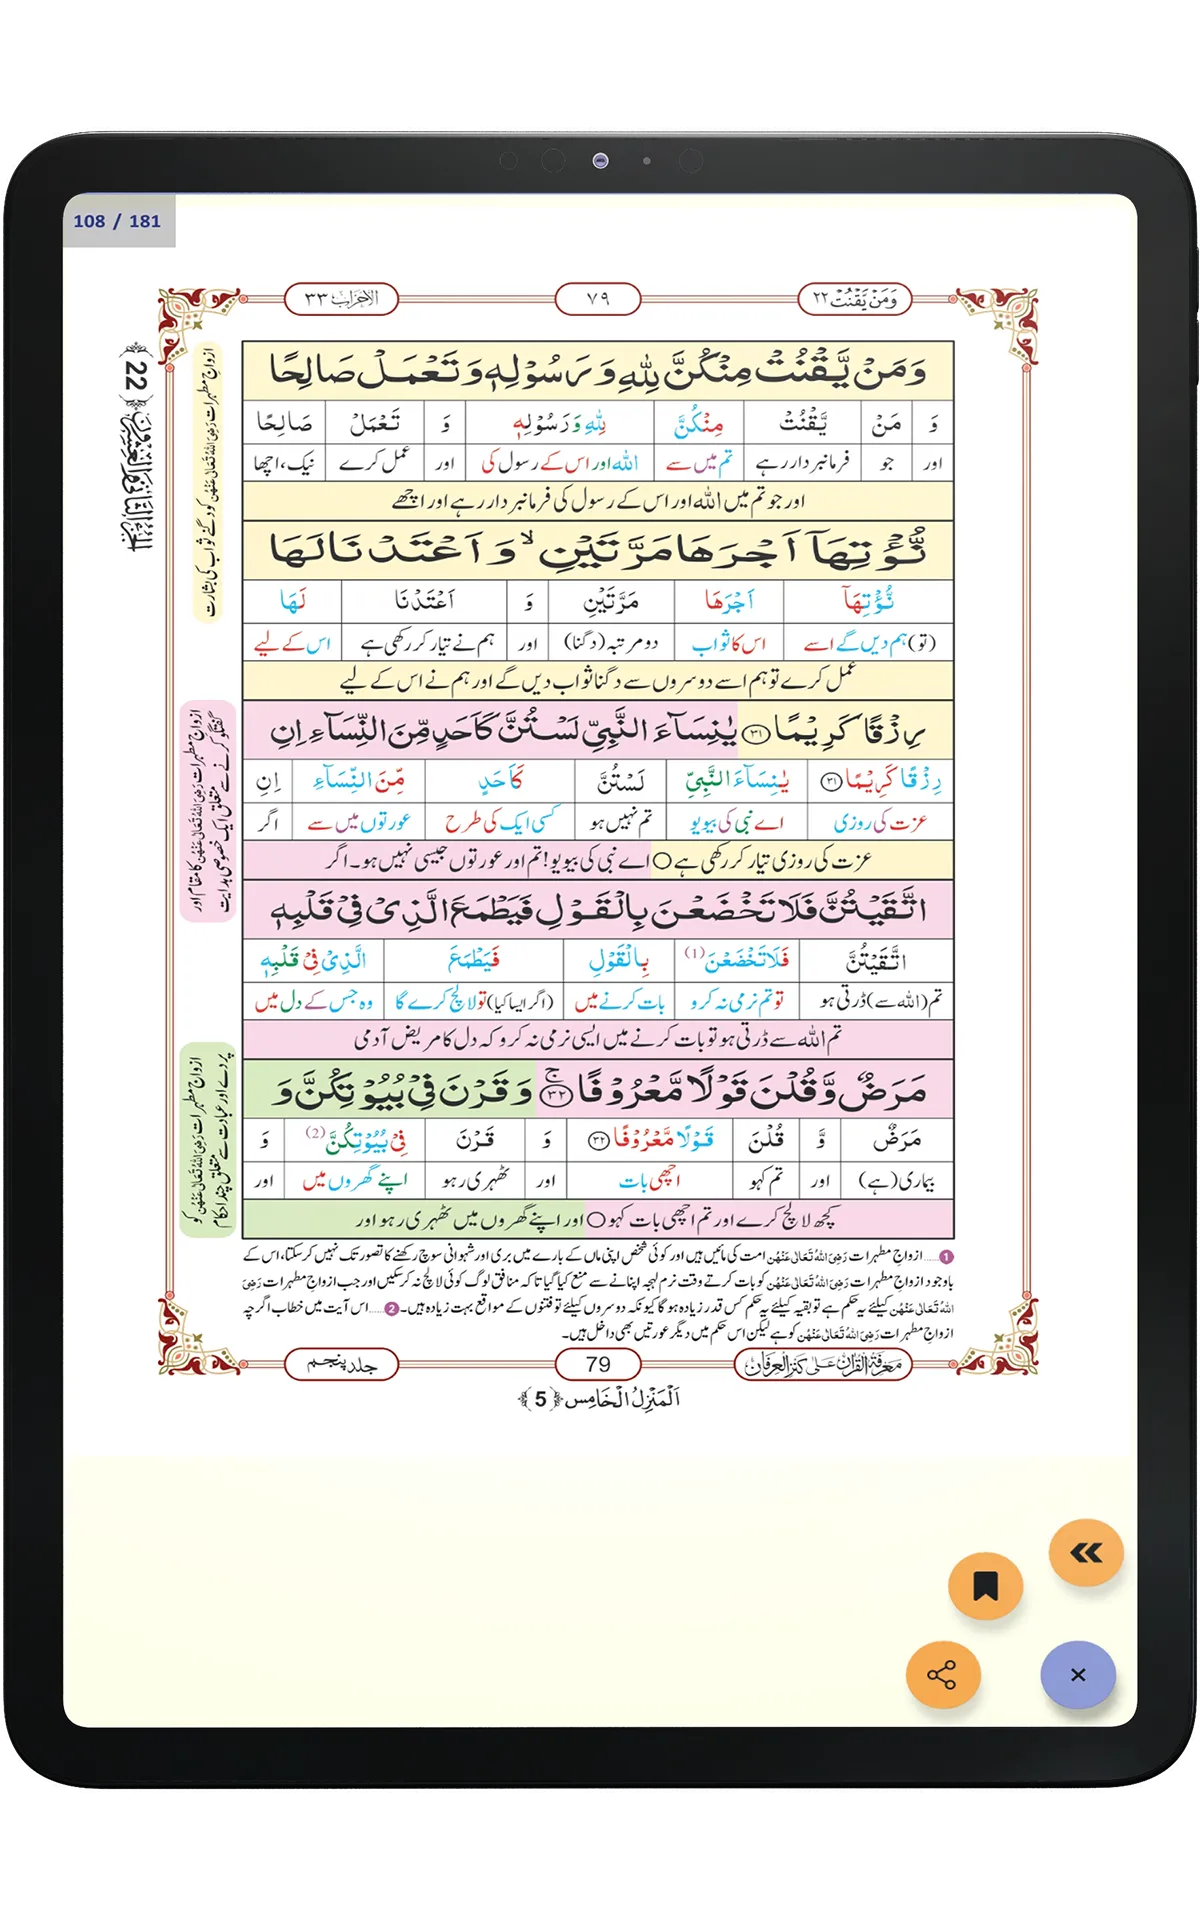 108 / 181
وَمَنْ یَّقْنُتْ ٢٢
٧٩
الاحزاب ٣٣
وَ مَنْ یَّقْنُتْ مِنْكُنَّ لِلّٰهِ وَ رَسُوْلِهٖ وَ تَعْمَلْ صَالِحًا
وَ مَنْ یَّقْنُتْ مِنْكُنَّ لِلّٰهِ وَ رَسُوْلِهٖ وَ تَعْمَلْ صَالِحًا
اور جو فرمانبردار رہے تم میں سے اللہ اور اس کے رسول کی اور عمل کرے نیک، اچھا
اور جو تم میں اللہ اور اس کے رسول کی فرمانبردار رہے اور اچھے
نُّؤْتِهَاۤ اَجْرَهَا مَرَّتَیْنِۙ وَ اَعْتَدْنَا لَهَا
نُّؤْتِهَاۤ اَجْرَهَا مَرَّتَیْنِ وَ اَعْتَدْنَا لَهَا
(تو) ہم دیں گے اسے اس کا ثواب دو مرتبہ (دگنا) اور ہم نے تیار کر رکھی ہے اس کے لیے
عمل کرے تو ہم اسے دوسروں سے دگنا ثواب دیں گے اور ہم نے اس کے لیے
رِزْقًا كَرِیْمًا ٣١ یٰنِسَآءَ النَّبِیِّ لَسْتُنَّ كَاَحَدٍ مِّنَ النِّسَآءِ اِنِ
رِزْقًا كَرِیْمًا ٣١ یٰنِسَآءَ النَّبِیِّ لَسْتُنَّ كَاَحَدٍ مِّنَ النِّسَآءِ اِنِ
عزت کی روزی اے نبی کی بیویو تم نہیں ہو کسی ایک کی طرح عورتوں میں سے اگر
عزت کی روزی تیار کر رکھی ہے ○ اے نبی کی بیویو! تم اور عورتوں جیسی نہیں ہو۔ اگر
اتَّقَیْتُنَّ فَلَا تَخْضَعْنَ بِالْقَوْلِ فَیَطْمَعَ الَّذِیْ فِیْ قَلْبِهٖ
اتَّقَیْتُنَّ فَلَا تَخْضَعْنَ (1) بِالْقَوْلِ فَیَطْمَعَ الَّذِیْ فِیْ قَلْبِهٖ
تم (اللہ سے) ڈرتی ہو تو تم نرمی نہ کرو بات کرنے میں (اگر ایسا کیا) تو لالچ کرے گا وہ جس کے دل میں
تم اللہ سے ڈرتی ہو تو بات کرنے میں ایسی نرمی نہ کرو کہ دل کا مریض آدمی
مَرَضٌ وَّ قُلْنَ قَوْلًا مَّعْرُوْفًاۚ ٣٢ وَ قَرْنَ فِیْ بُیُوْتِكُنَّ وَ
مَرَضٌ وَّ قُلْنَ قَوْلًا مَّعْرُوْفًا ٣٢ وَ قَرْنَ فِیْ بُیُوْتِكُنَّ (2) وَ
بیماری (ہے) اور تم کہو اچھی بات اور ٹھہری رہو اپنے گھروں میں اور
کچھ لالچ کرے اور تم اچھی بات کہو ○ اور اپنے گھروں میں ٹھہری رہو اور
1 ..... ازواج مطہرات رَضِیَ اللہُ تَعَالٰی عَنْهُن امت کی مائیں ہیں اور کوئی شخص اپنی ماں کے بارے میں بری اور شہوانی سوچ رکھنے کا تصور تک نہیں کر سکتا، اس کے
باوجود ازواج مطہرات رَضِیَ اللہُ تَعَالٰی عَنْهُن کو بات کرتے وقت نرم لہجہ اپنانے سے منع کیا گیا تاکہ منافق لوگ کوئی لالچ نہ کر سکیں اور جب ازواج مطہرات رَضِیَ
اللہُ تَعَالٰی عَنْهُن کیلئے یہ حکم ہے تو بقیہ کیلئے یہ حکم کس قدر زیادہ ہو گا کیونکہ دوسروں کیلئے تو فتنوں کے مواقع بہت زیادہ ہیں۔ 2 ..... اس آیت میں خطاب اگرچہ
ازواج مطہرات رَضِیَ اللہُ تَعَالٰی عَنْهُن کو ہے لیکن اس حکم میں دیگر عورتیں بھی داخل ہیں۔
ازواج مطہرات رَضِیَ اللہُ تَعَالٰی عَنْهُن کو دگنے ثواب کی بشارت
ازواج مطہرات رَضِیَ اللہُ تَعَالٰی عَنْهُن کا مقام اور
گفتگو کرنے سے متعلق ایک خصوصی ہدایت
ازواج مطہرات رَضِیَ اللہُ تَعَالٰی عَنْهُن کو
پردے اور عبادت سے متعلق چند احکام
الجزء الثانی والعشرون (22)
معرفۃ القرآن علیٰ کنز العرفان
79
جلد پنجم
اَلْمَنْزِلُ الْخَامِس (5)